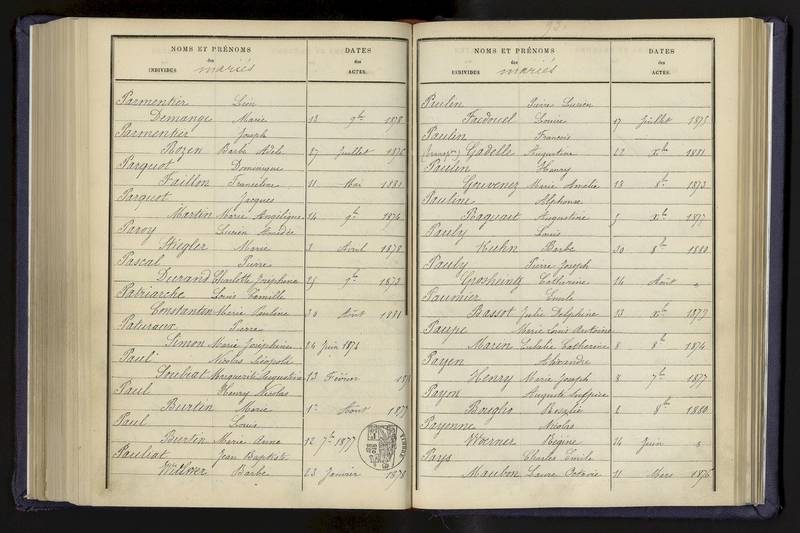 NOMS ET PRÉNOMS
des
INDIVIDUS mariés
DATES
des
ACTES.
Parmentier Léon
Demange Marie 13 9bre 1878
Parmentier Joseph
Rozen Barbe Adèle 27 Juillet 1876
Parquot Dominique
Faillon Françoise 11 Mai 1881
Parquot Jacques
Martin Marie Angélique 14 9bre 1874
Paroy Lucien Amédée
Stiegler Marie 3 Avril 1878
Pascal Pierre
Durand Charlotte Joséphine 25 9bre 1873
Patriarche Louis Camille
Constantin Marie Pauline 30 Août 1881
Patureaux Pierre
Simon Marie Joséphine 24 Juin 1873
Paul Nicolas Léopold
Loubiat Marguerite Augustine 13 Février
Paul Henry Nicolas
Burtin Marie 1er Août 1877
Paul Louis
Burtin Marie Anne 12 7bre 1877
Pauliat Jean Baptiste
Barbe 23 Janvier 1878
93.
NOMS ET PRÉNOMS
des
INDIVIDUS mariés
DATES
des
ACTES.
Paulin Pierre Lucien
Louise 17 Juillet 1875
Paulin François
Gadelle Augustine 22 Xbre 1881
Paulin Henry
Gouvenez Marie Amélie 13 8bre 1873
Pauline Alphonse
Raguait Augustine 5 Xbre 1877
Pauly Louis
Kuhn Barbe 30 8bre 1880
Pauly Pierre Joseph
Catherine 14 Août "
Paumier Emile
Bassot Julie Delphine 13 Xbre 1877
Paupe Marie Louis Antoine
Marin Eulalie Catherine 8 8bre 1874
Payen Alexandre
Henry Marie Joseph 8 7bre 1877
Payon Auguste Sulpice
Rosalie 2 8bre 1880
Payonne Nicolas
Woerner Régine 24 Juin "
Pays Charles Emile
Maubon Laure Octavie 11 Mars 1876